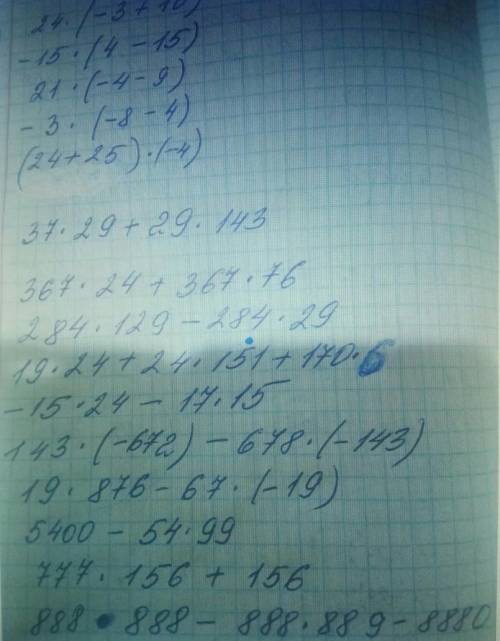 24·(-3+10)
-15·(4-15)
21·(-4-9)
-3·(-8-4)
(24+25)·(-4)
37·29+29·143
367·24+367·76
284·129-284·29
19·24+24·151+170·6
-15·24-17·15
143·(-672)-678·(-143)
19·876-67·(-19)
5400-54·99
777·156+156
888·888-888·889-8880